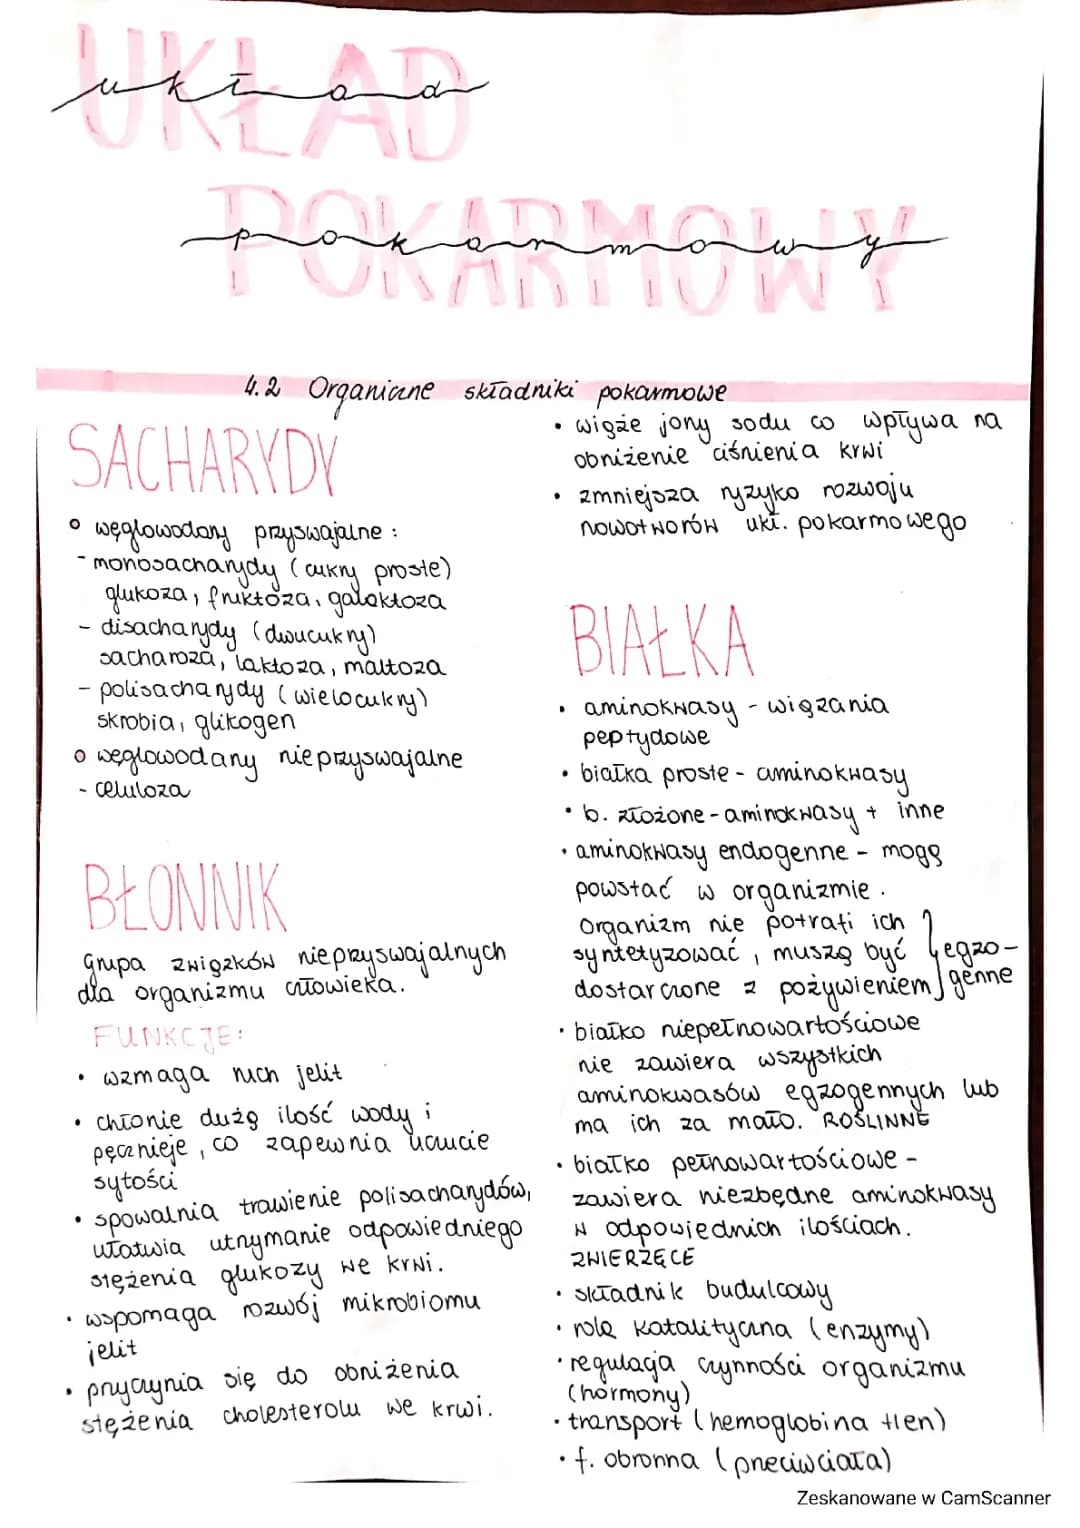 UKŁAD
układ
POKARMOWY
pokarmowy
4.2 Organiczne składniki pokarmowe
SACHARYDY
węglowodany przyswajalne:
- monosacharydy (cukry proste)
glukoza, fruktoza, galaktoza
- disacharydy (dwucukry)
sacharoza, laktoza, maltoza
- polisacharydy (wielocukry)
skrobia, glikogen
węglowodany nieprzyswajalne
- celuloza
BŁONNIK
Grupa związków nieprzyswajalnych
dla organizmu człowieka.
FUNKCJE:
• wzmaga ruch jelit
• chłonie dużą ilość wody i
pęcznieje, co zapewnia uczucie
sytości
• spowalnia trawienie polisacharydów,
ułatwia utrzymanie odpowiedniego
stężenia glukozy we krwi.
• wspomaga rozwój mikrobiomu
jelit
• przyczynia się do obniżenia
stężenia cholesterolu we krwi.
• wiąże jony sodu co wpływa na
obniżenie ciśnienia krwi
• zmniejsza ryzyko rozwoju
nowotworów ukł. pokarmowego
BIAŁKA
• aminokwasy - wiązania
peptydowe
• białka proste - aminokwasy
• b. złożone - aminokwasy + inne
• aminokwasy endogenne - mogą
powstać w organizmie.
Organizm nie potrafi ich
syntetyzować, muszą być
dostarczone z pożywieniem } egzo-
genne
• białko niepełnowartościowe
nie zawiera wszystkich
aminokwasów egzogennych lub
ma ich za mało. ROŚLINNE
• białko pełnowartościowe -
zawiera niezbędne aminokwasy
w odpowiednich ilościach.
ZWIERZĘCE
• składnik budulcowy
• rolę katalityczna (enzymy)
• regulacja czynności organizmu
(hormony)
• transport (hemoglobina tlen)
• f. obronna (przeciwciała)
Zeskanowane w CamScanner